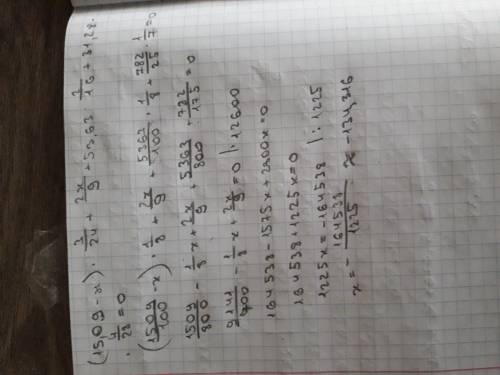 (15,09 - x) · 3/24 + 2x/9 + 53,63 · 2/16 + 31,28 ·
· 4/28 = 0
(1509/100 - x) · 1/8 + 2x/9 + 5363/100 · 1/8 + 782/25 · 1/7 = 0
1509/800 - 1/8 x + 2x/9 + 5363/800 + 782/175 = 0
9141/700 - 1/8 x + 2x/9 = 0 |·12600
164538 - 1575x + 2800x = 0
164538 + 1225x = 0
1225x = -164538 |: 1225
x = - 164538/1225 x -134,316